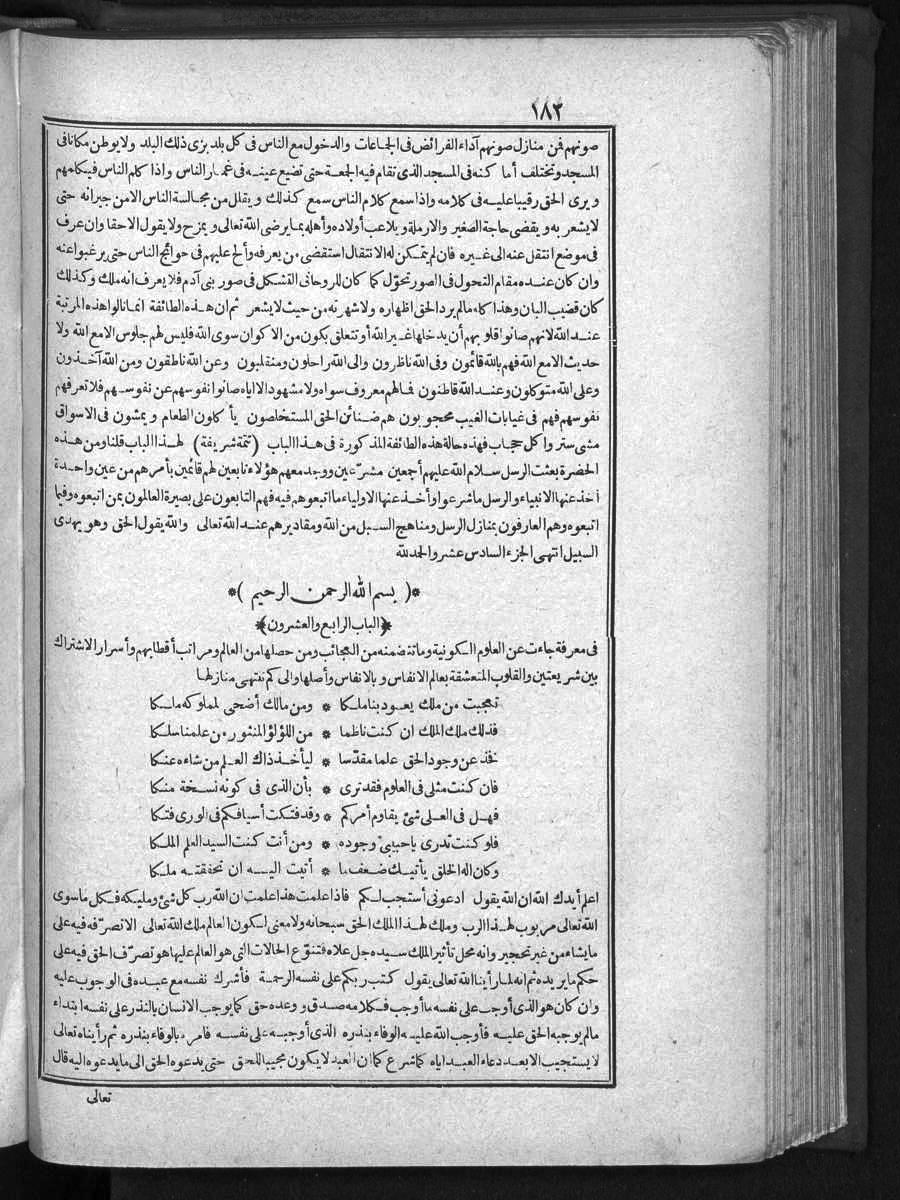 ١٨٢
صونهم فن منازل صونهم أداء الفرائض فى الجماعات والدخول مع الناس فى كل بلد بزى ذلك البلد ولا يوطن مكانا فى
المسجد وتختلف أما كنه فى المسجد الذى تقام فيه الجمعة حتى تضيع عينه فى غمار الناس واذا كلم الناس فيكلمهم
ويرى الحق رقيبا عليه فى كلامه واذا سمع كلام الناس سمع كذلك ويقلل من مجالسة الناس الامن جيرانه حتى
لايشعر به ويقضى حاجة الصغير والارملة ويلاعب أولاده وأهله بما يرضى الله تعالى ويمزح ولا يقول الاحقا وان عرف
فى موضع انتقل عنه الى غيره فان لم يتمكن له الانتقال استقضى من يعرفه وألح عليهم فى حوائج الناس حتى يرغبوا عنه
وان كان عنده مقام التحول فى الصور تحوّل كما كان للروحانى التشكل فى صور بنى آدم فلا يعرف انه ملك وكذلك
كان قضيب البان وهذا كله مالم يرد الحق اظهاره ولا شهرته من حيث لايشعر ثم ان هذه الطائفة انما نالوا هذه المرتبة
عند الله لانهم صانوا قلوبهم أن يدخلها غير الله أو تتعلق بكون من الاكوان سوى الله فليس لهم جلوس الامع الله ولا
حديث الامع الله فهم بالله قائمون وفى الله ناظرون والى الله راحلون ومنقلبون وعن الله ناطقون ومن الله آخذون
وعلى الله متوكلون وعند الله قاطنون فما لهم معروف سواه ولا مشهود الا اياه صانوا نفوسهم عن نفوسهم فلا تعرفهم
نفوسهم فهم فى غيابات الغيب محجوبون هم ضنائن الحق المستخلصون يأكلون الطعام ويمشون فى الاسواق
مشى ستر واكل حجاب فهذه حالة هذه الطائفة المذكورة فى هذا الباب (تتمة شريفة) لهذا الباب قلنا ومن هذه
الحضرة بعثت الرسل سلام الله عليهم أجمعين مشرّعين ووجد معهم هؤلاء تابعين لهم قائمين بأمرهم من عين واحدة
أخذ عنها الانبياء والرسل ما شرعوا وأخذ عنها الاولياء ما اتبعوهم فيه فهم التابعون على بصيرة العالمون بمن اتبعوه وفيما
اتبعوه وهم العارفون بمنازل الرسل ومناهج السبل من الله ومقاديرهم عند الله تعالى والله يقول الحق وهو يهدى
السبيل انتهى الجزء السادس عشر والحمد لله
*(بسم الله الرحمن الرحيم)*
﴿الباب الرابع والعشرون﴾
فى معرفة جاءت عن العلوم الكونية وما تتضمنه من العجائب ومن حصلها من العالم ومراتب أقطابهم وأسرار الاشتراك
بين شريعتين والقلوب المتعشقة بعالم الانفاس وبالانفاس وأصلها والى كم تنتهى منازلها
تعجبت من ملك يعود بنا ملكا * ومن مالك أضحى لمملوكه ملكا
فذلك ملك الملك ان كنت ناظما * من اللؤلؤ المنثور من علمنا سلكا
فخذ عن وجود الحق علما مقدّسا * ليأخذ ذاك العلم من شاءه عنكا
فان كنت مثلى فى العلوم فقد ترى * بأن الذى فى كونه نسخة منكا
فهل فى العلى شئ يقاوم أمركم * وقد فتكت أسيافكم فى الورى فتكا
فلو كنت تدرى ياحبيبى وجوده * ومن أنت كنت السيد العلم الملكا
وكان اله الخلق يأتيك ضعف ما * أتيت اليه ان تحققته ملكا
اعلم أيدك الله ان الله يقول ادعونى أستجب لكم فاذا علمت هذا علمت ان الله رب كل شئ ومليكه فكل ماسوى
الله تعالى مربوب لهذا الرب وملك لهذا الملك الحق سبحانه ولا معنى لكون العالم ملك الله تعالى الاتصرّفه فيه على
مايشاء من غير تحجير وانه محل تأثير الملك سيده جل علاه فتنوّع الحالات التى هو العالم عليها هو تصرّف الحق فيه على
حكم مايريده ثم انه لما رأينا الله تعالى يقول كتب ربكم على نفسه الرحمة فأشرك نفسه مع عبده فى الوجوب عليه
وان كان هو الذى أوجب على نفسه ما أوجب فكلامه صدق ووعده حق كما يوجب الانسان بالنذر على نفسه ابتداء
مالم يوجبه الحق عليه فأوجب الله عليه الوفاء بنذره الذى أوجبه على نفسه فامره بالوفاء بنذره ثم رأيناه تعالى
لايستجيب الابعد دعاء العبد اياه كما شرع كما ان العبد لايكون مجيبا للحق حتى يدعوه الحق الى ما يدعوه اليه قال
تعالى